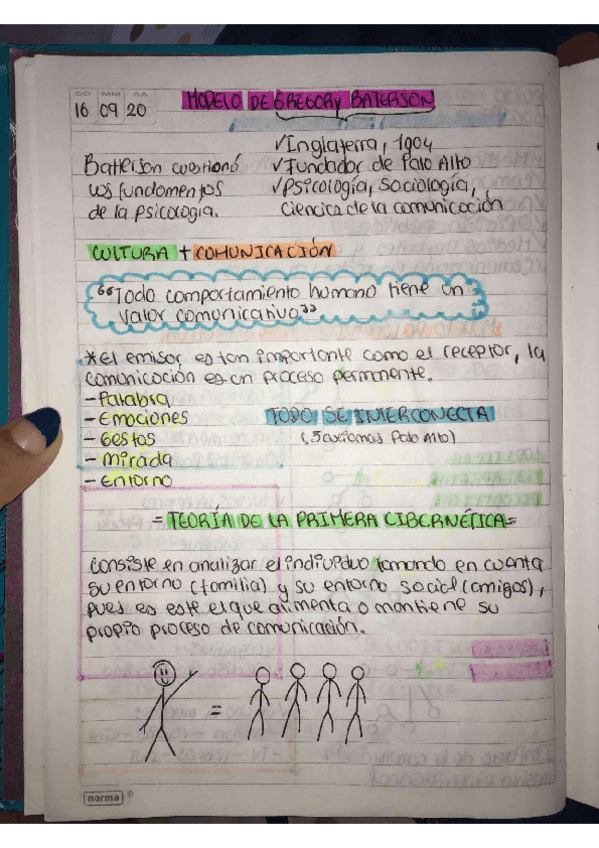 DD MM AA
16 09 20
MODELO DE GREGORY BATERSON
✓Inglaterra, 1904
✓Fundador de Palo Alto
✓Psicología, Sociología,
Ciencia de la comunicación
Baterson cuestionó
los fundamentos
de la psicología.
CULTURA + COMUNICACIÓN
"Todo comportamiento humano tiene un
valor comunicativo"
*El emisor es tan importante como el receptor, la
comunicación es un proceso permanente.
-Palabra
-Emociones
-Gestos
-mirada
-Entorno
TODO SE INTERCONECTA
(5 axiomas Palo Alto)
=TEORÍA DE LA PRIMERA CIBERNÉTICA=
Consiste en analizar el individuo tomando en cuenta
su entorno (familia) y su entorno social (amigos),
pues es este el que alimenta o mantiene su
propio proceso de comunicación.
=
norma